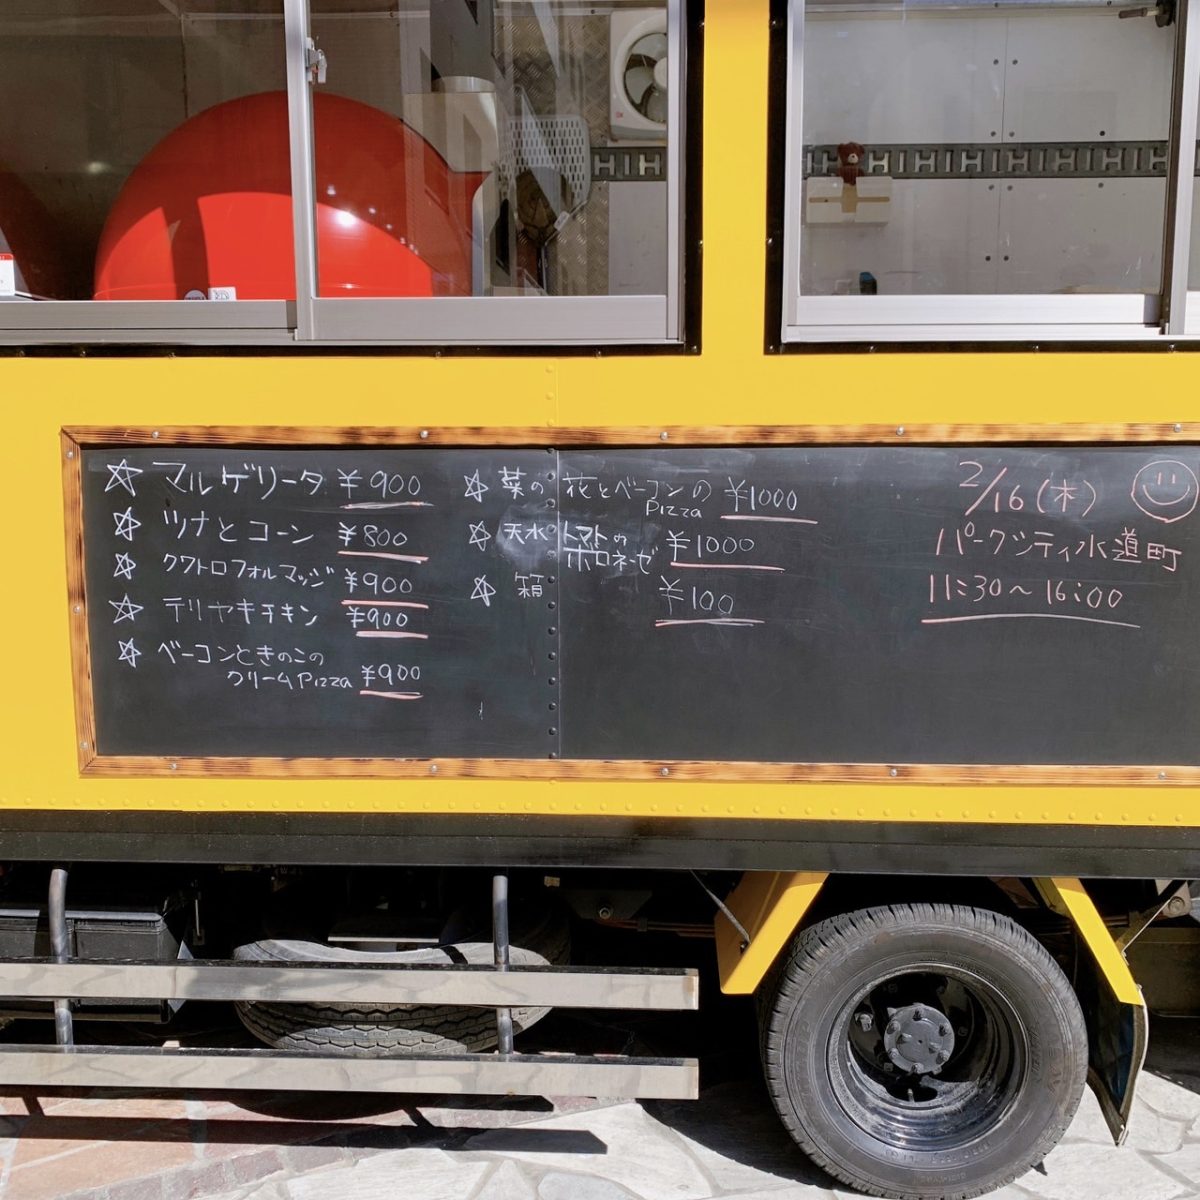 ☆ マルゲリータ ¥900
☆ ツナとコーン ¥800
☆ クワトロフォルマッジ ¥900
☆ テリヤキチキン ¥900
☆ ベーコンときのこの
クリームPizza ¥900
☆ 菜の花とベーコンの
Pizza ¥1000
☆ 天水トマトの
ボロネーゼ ¥1000
☆ 箱 ¥100
2/16(木)
パークシティ水道町
11:30〜16:00